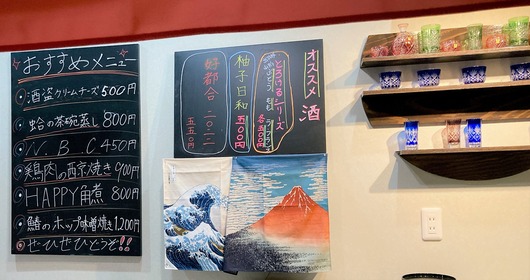 おすすめメニュー
酒盗クリームチーズ 500円
蛤の茶碗蒸し 800円
N.B.C 450円
鶏肉の西京焼き 900円
HAPPY角煮 800円
鰆のホップ味噌焼き 1,200円
ぜひぜひどうぞ!!
オススメ 酒
とろけるシリーズ
各500円
柚子日和
五〇〇円
好都合 二〇二二
五五〇円